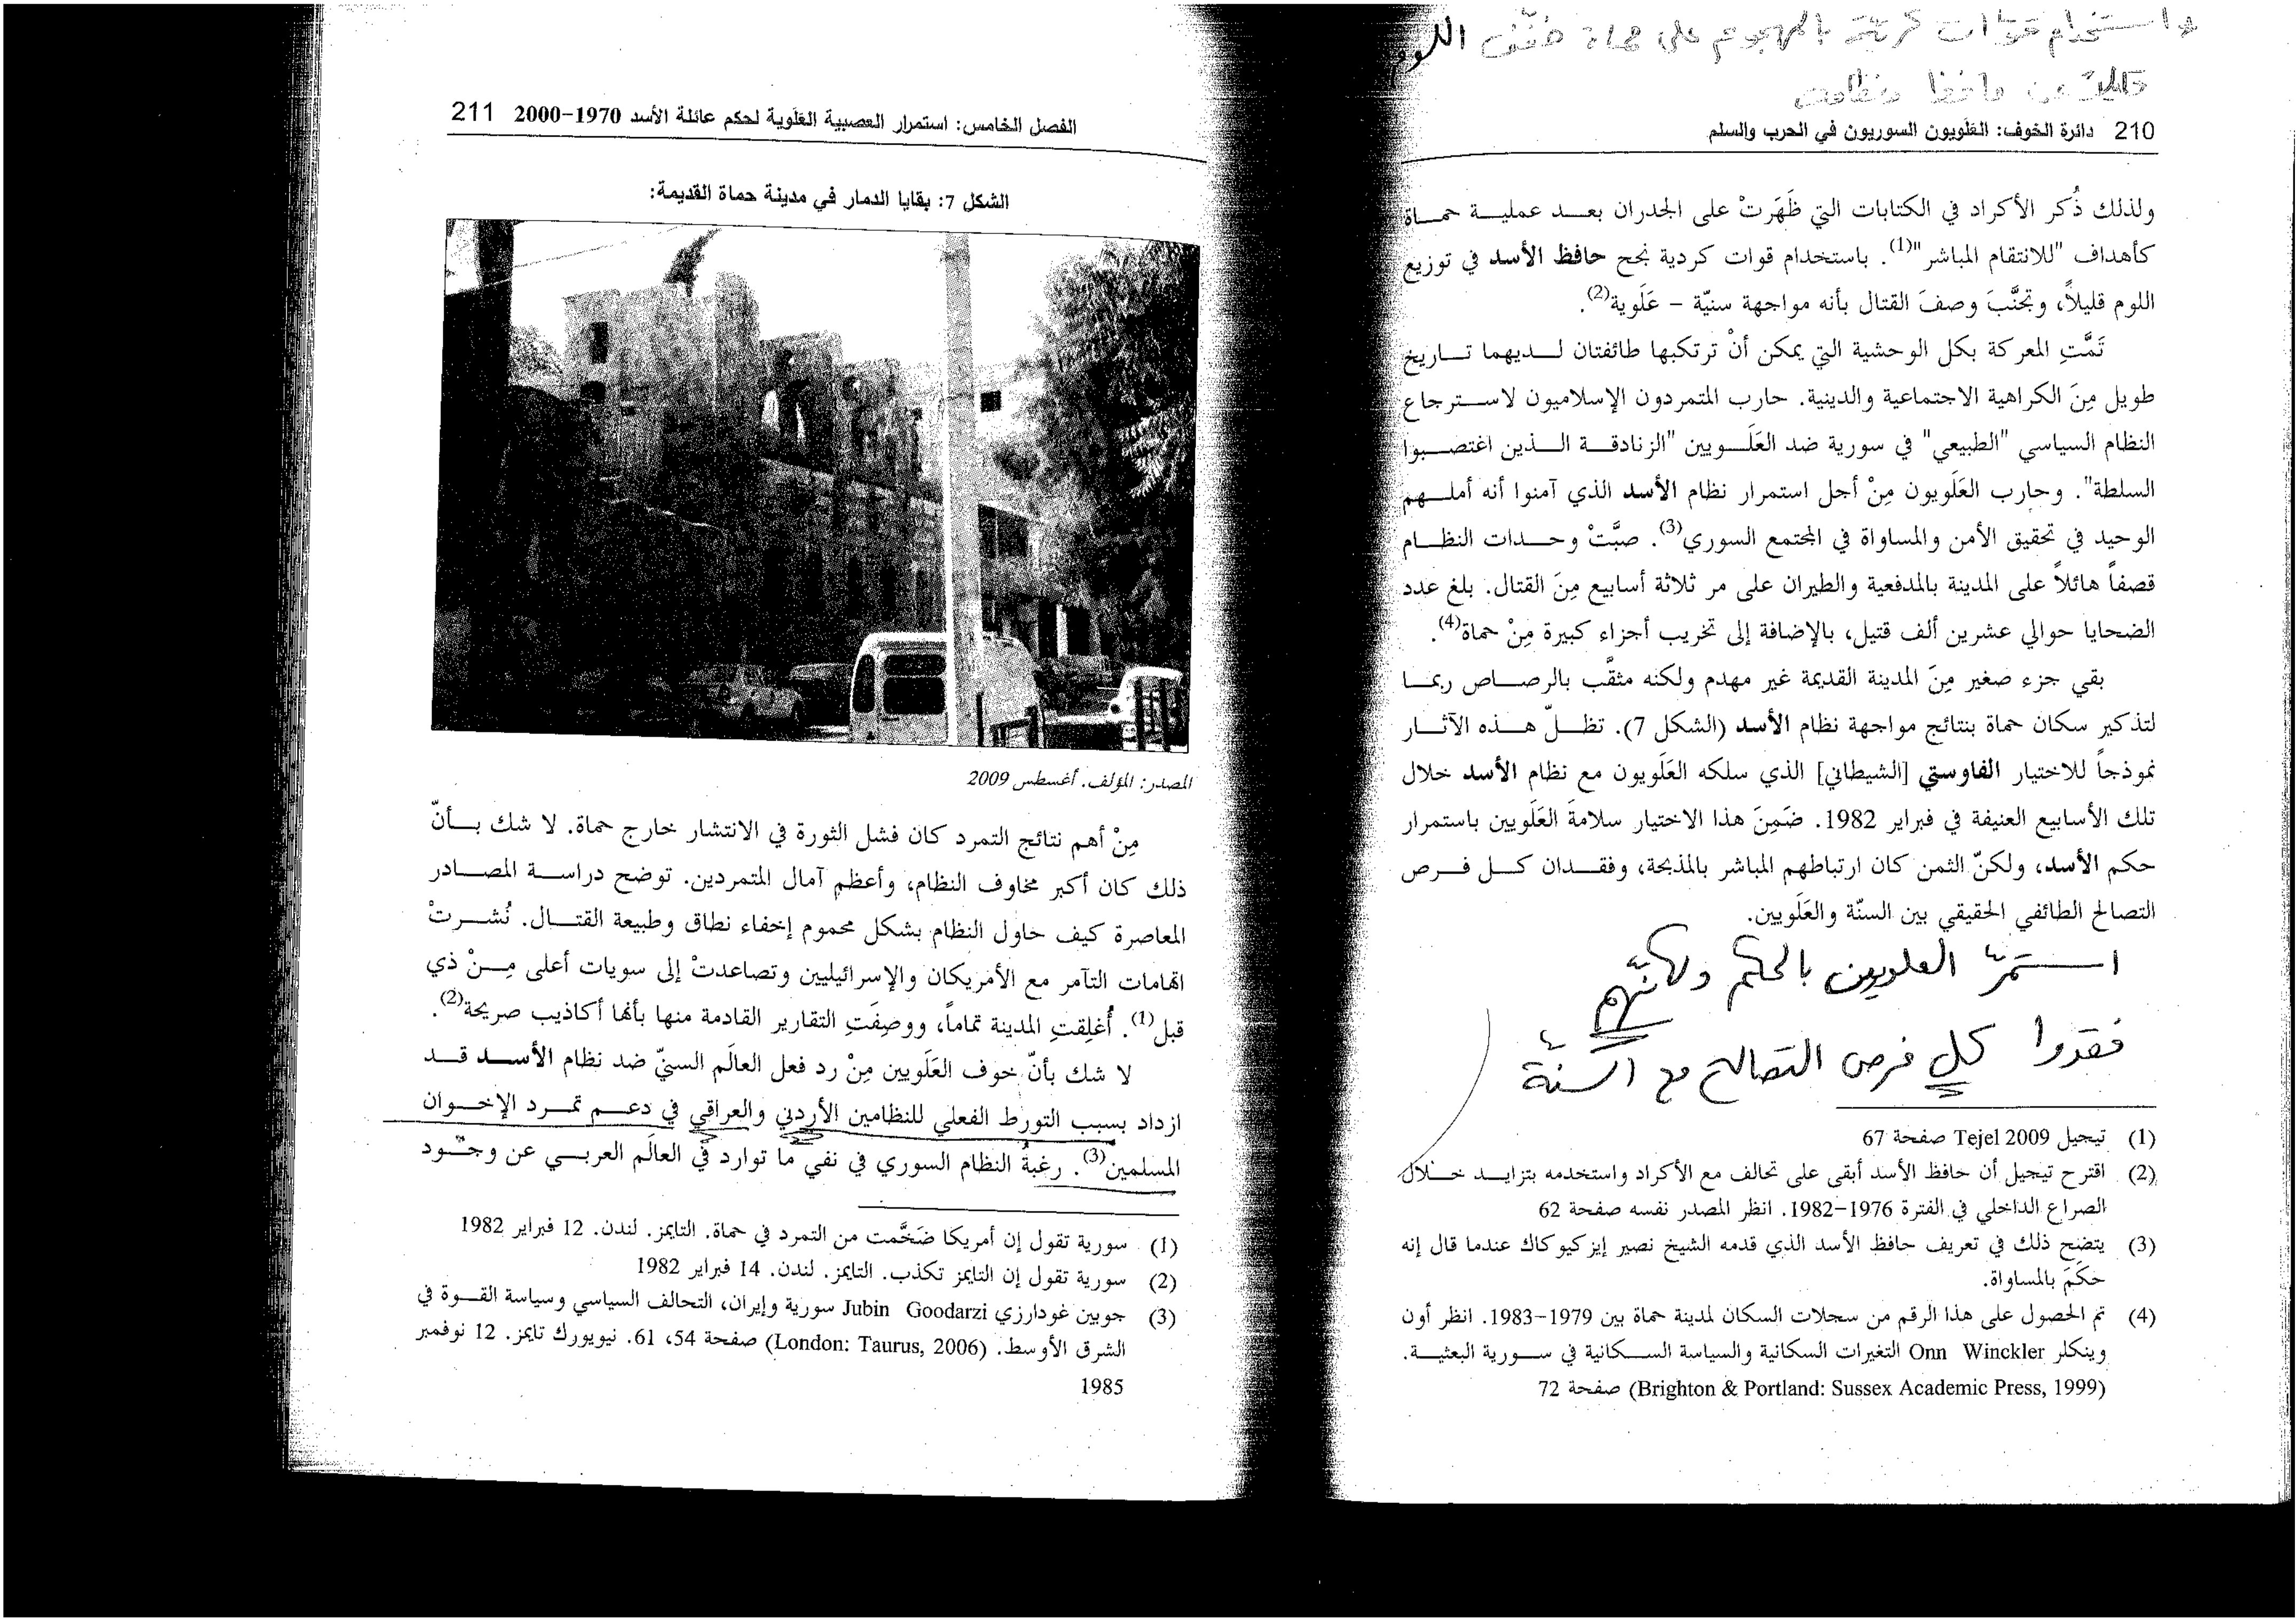 واستخدام قوات كردية بالهجوم على حماة خفّف اللوم
قليلاً عن حافظ ونظامه
210 دائرة الخوف: العَلَويون السوريون في الحرب والسلم
ولذلك ذُكر الأكراد في الكتابات التي ظَهَرتْ على الجدران بعد عملية حماة
كأهداف "للانتقام المباشر"(1). باستخدام قوات كردية نجح حافظ الأسد في توزيع
اللوم قليلاً، وتجنَّبَ وصفَ القتال بأنه مواجهة سنيّة – عَلَوية(2).
تَمَّتِ المعركة بكل الوحشية التي يمكن أنْ ترتكبها طائفتان لديهما تاريخ
طويل مِنَ الكراهية الاجتماعية والدينية. حارب المتمردون الإسلاميون لاسترجاع
النظام السياسي "الطبيعي" في سورية ضد العَلَويين "الزنادقة الذين اغتصبوا
السلطة". وحارب العَلَويون مِنْ أجل استمرار نظام الأسد الذي آمنوا أنه أملهم
الوحيد في تحقيق الأمن والمساواة في المجتمع السوري(3). صبَّتْ وحدات النظام
قصفاً هائلاً على المدينة بالمدفعية والطيران على مر ثلاثة أسابيع مِنَ القتال. بلغ عدد
الضحايا حوالي عشرين ألف قتيل، بالإضافة إلى تخريب أجزاء كبيرة مِنْ حماة(4).
بقي جزء صغير مِنَ المدينة القديمة غير مهدم ولكنه مثقَّب بالرصاص ربما
لتذكير سكان حماة بنتائج مواجهة نظام الأسد (الشكل 7). تظلّ هذه الآثار
نموذجاً للاختيار الفاوستي [الشيطاني] الذي سلكه العَلَويون مع نظام الأسد خلال
تلك الأسابيع العنيفة في فبراير 1982. ضَمِنَ هذا الاختيار سلامةَ العَلَويين باستمرار
حكم الأسد، ولكنّ الثمن كان ارتباطهم المباشر بالمذبحة، وفقدان كل فرص
التصالح الطائفي الحقيقي بين السنّة والعَلَويين.
استمرّ العلويين بالحكم ولكنّهم
فقدوا كل فرص التصالح مع السنّة
(1) تيجيل Tejel 2009 صفحة 67
(2) اقترح تيجيل أن حافظ الأسد أبقى على تحالف مع الأكراد واستخدمه بتزايد خلال
الصراع الداخلي في الفترة 1976-1982. انظر المصدر نفسه صفحة 62
(3) يتضح ذلك في تعريف حافظ الأسد الذي قدمه الشيخ نصير إيزكيوكاك عندما قال إنه
حكَمَ بالمساواة.
(4) تم الحصول على هذا الرقم من سجلات السكان لمدينة حماة بين 1979-1983. انظر أون
وينكلر Onn Winckler التغيرات السكانية والسياسة السكانية في سورية البعثية.
(Brighton & Portland: Sussex Academic Press, 1999) صفحة 72
الفصل الخامس: استمرار العصبية العَلَوية لحكم عائلة الأسد 1970-2000 211
الشكل 7: بقايا الدمار في مدينة حماة القديمة:
المصدر: المؤلف. أغسطس 2009
مِنْ أهم نتائج التمرد كان فشل الثورة في الانتشار خارج حماة. لا شك بأنّ
ذلك كان أكبر مخاوف النظام، وأعظم آمال المتمردين. توضح دراسة المصادر
المعاصرة كيف حاول النظام بشكل محموم إخفاء نطاق وطبيعة القتال. نُشرتْ
اتهامات التآمر مع الأمريكان والإسرائيليين وتصاعدتْ إلى سويات أعلى مِنْ ذي
قبل(1). أُغلِقتِ المدينة تماماً، ووصِفَتِ التقارير القادمة منها بأنها أكاذيب صريحة(2).
لا شك بأنّ خوف العَلَويين مِنْ رد فعل العالَم السنيّ ضد نظام الأسد قد
ازداد بسبب التورط الفعلي للنظامين الأردني والعراقي في دعم تمرد الإخوان
المسلمين(3). رغبةُ النظام السوري في نفي ما توارد في العالَم العربي عن وجود
(1) سورية تقول إن أمريكا ضَخَّمت من التمرد في حماة. التايمز. لندن. 12 فبراير 1982
(2) سورية تقول إن التايمز تكذب. التايمز. لندن. 14 فبراير 1982
(3) جوبين غودارزي Jubin Goodarzi سورية وإيران، التحالف السياسي وسياسة القوة في
الشرق الأوسط. (London: Taurus, 2006) صفحة 54، 61. نيويورك تايمز. 12 نوفمبر
1985